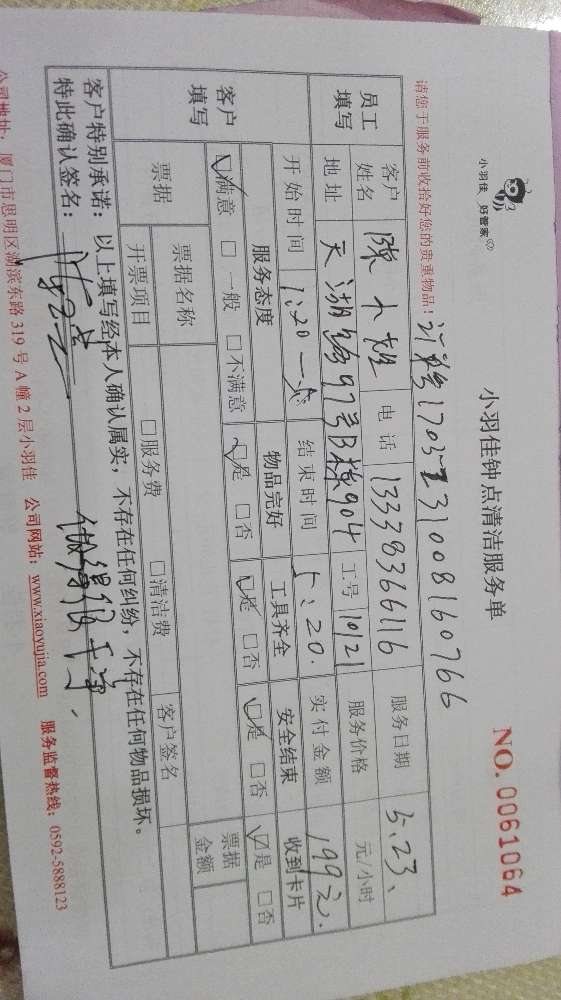 小羽佳 好管家
小羽佳钟点清洁服务单
NO. 0061064
请您于服务前收拾好您的贵重物品！
员工填写
客户姓名 陈小姐 电话 13338366116 服务日期 5.23、
地址 天湖路97号B栋904 工号 10121 服务价格 元/小时
开始时间 1:20 结束时间 5:20. 实付金额 199元.
客户填写
服务态度 物品完好 工具齐全 安全结束 收到卡片
☑满意 □一般 □不满意 ☑是 □否 ☑是 □否 ☑是 □否 ☑是 □否
票据 票据名称 票据金额
开票项目 □服务费 □清洁费 客户签名
客户特别承诺：以上填写经本人确认属实，不存在任何纠纷，不存在任何物品损坏。
特此确认签名： 做得很干净、
公司地址：厦门市思明区湖滨东路319号A幢2层小羽佳 公司网站：www.xiaoyujia.com 服务监督热线：0592-5888123